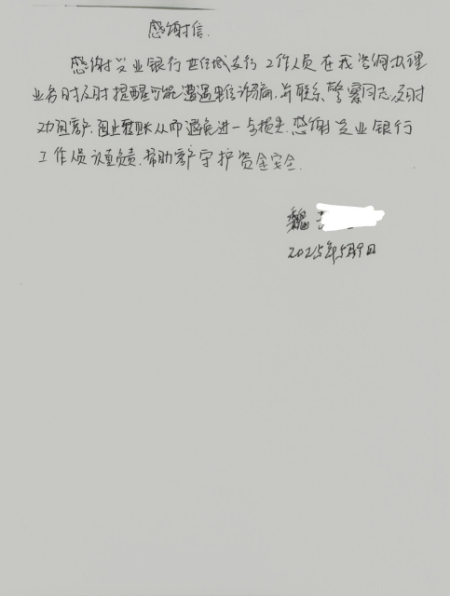 感谢信
感谢兴业银行世纪城支行工作人员在我咨询办理
业务时及时提醒可能遭遇电信诈骗,并联系警察同志及时
劝阻客户,阻止转账从而避免进一步损失.感谢兴业银行
工作人员认真负责,帮助客户守护资金安全.
魏
2025年5月9日